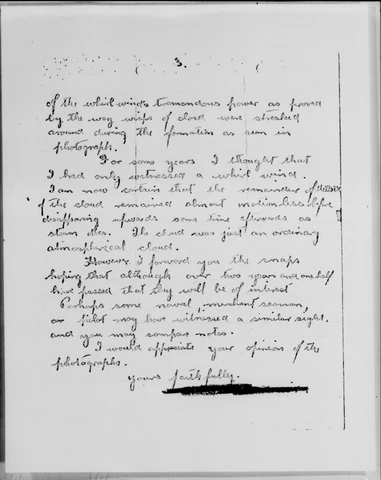 3.
of the whirl winds tremendous power as proved
by the way wisps of cloud were streaked
around during the formation as seen in
photograph.
For some years I thought that
I had only witnessed a whirl wind.
I am now certain that the remainder of the
of the cloud remained almost motionless before
disappearing upwards some time afterwards as
steam does. The cloud was just an ordinary
atmospherical cloud.
However I forward you the snaps
hoping that although over two years and one half
have passed that they will be of interest
Perhaps some naval, merchant seaman,
or pilot may have witnessed a similar sight.
and you may compare notes.
I would appreciate your opinion of the
photographs.
Yours faithfully.